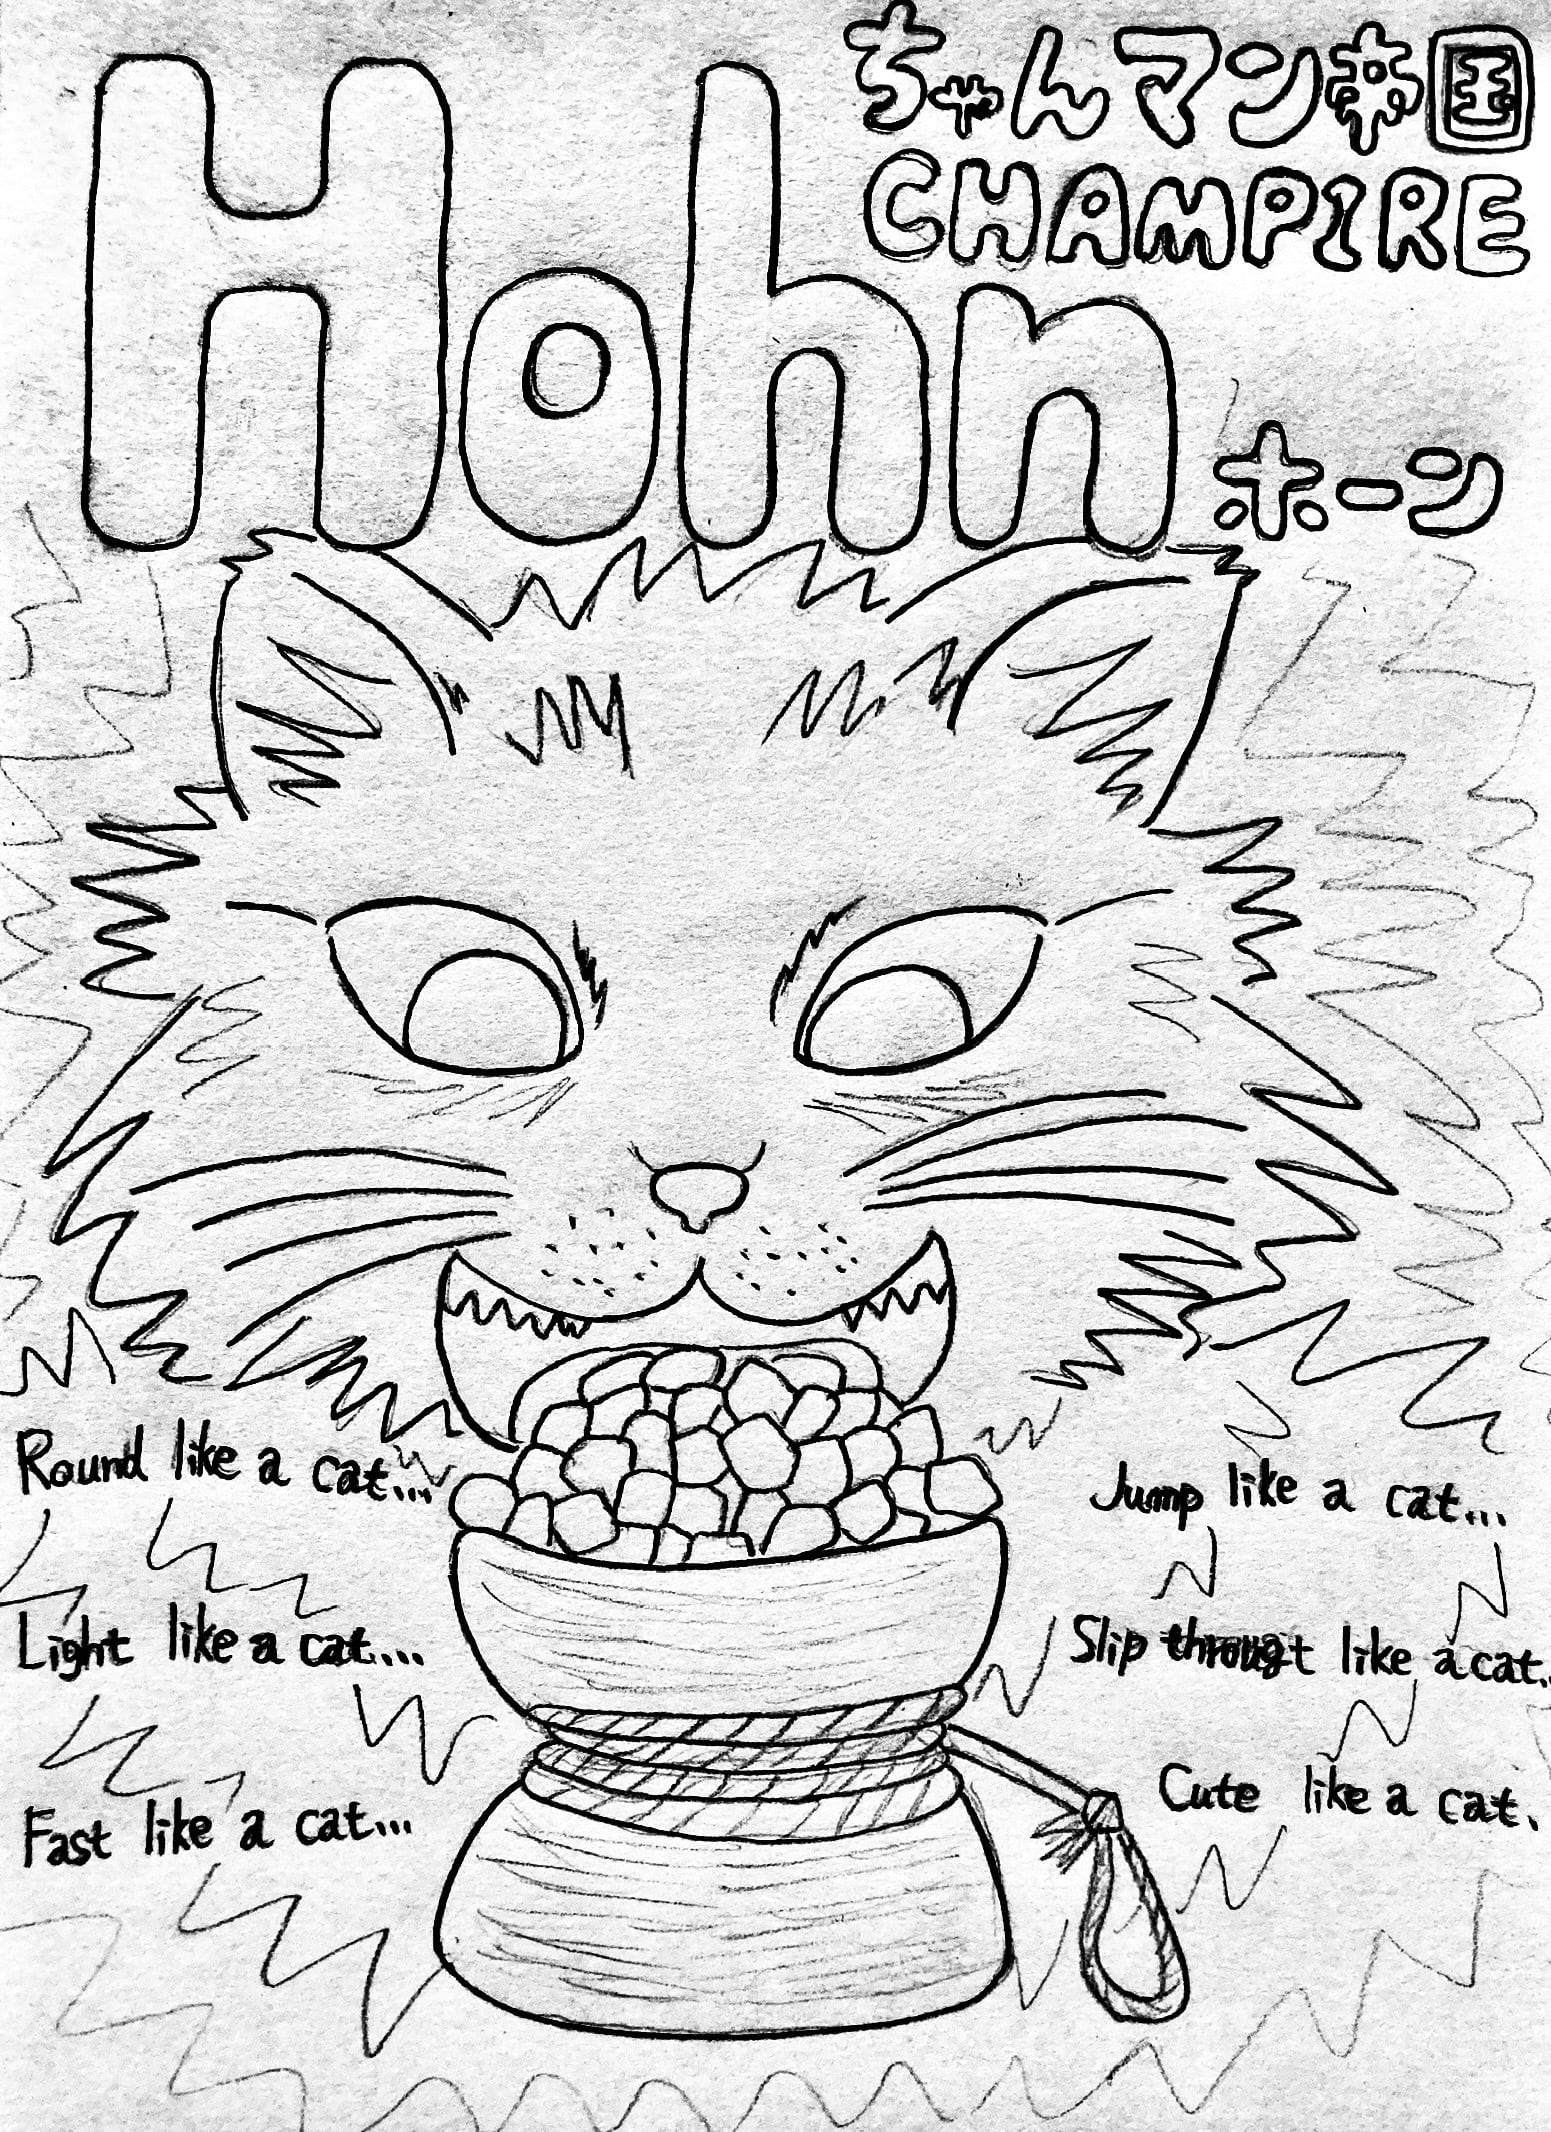 ちゃんマン帝国
CHAMPIRE
Hohn
ホーン
Round like a cat...
Jump like a cat...
Light like a cat...
Slip througt like a cat..
Fast like a cat...
Cute like a cat.